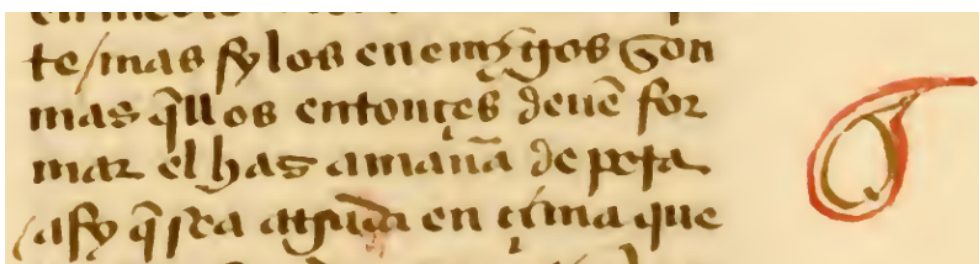 te/mas sy los enemygos son
mas q̃llos entonçes deuẽ for
mar el has a manãa de peta
asy q̃ sea aguda en çima que